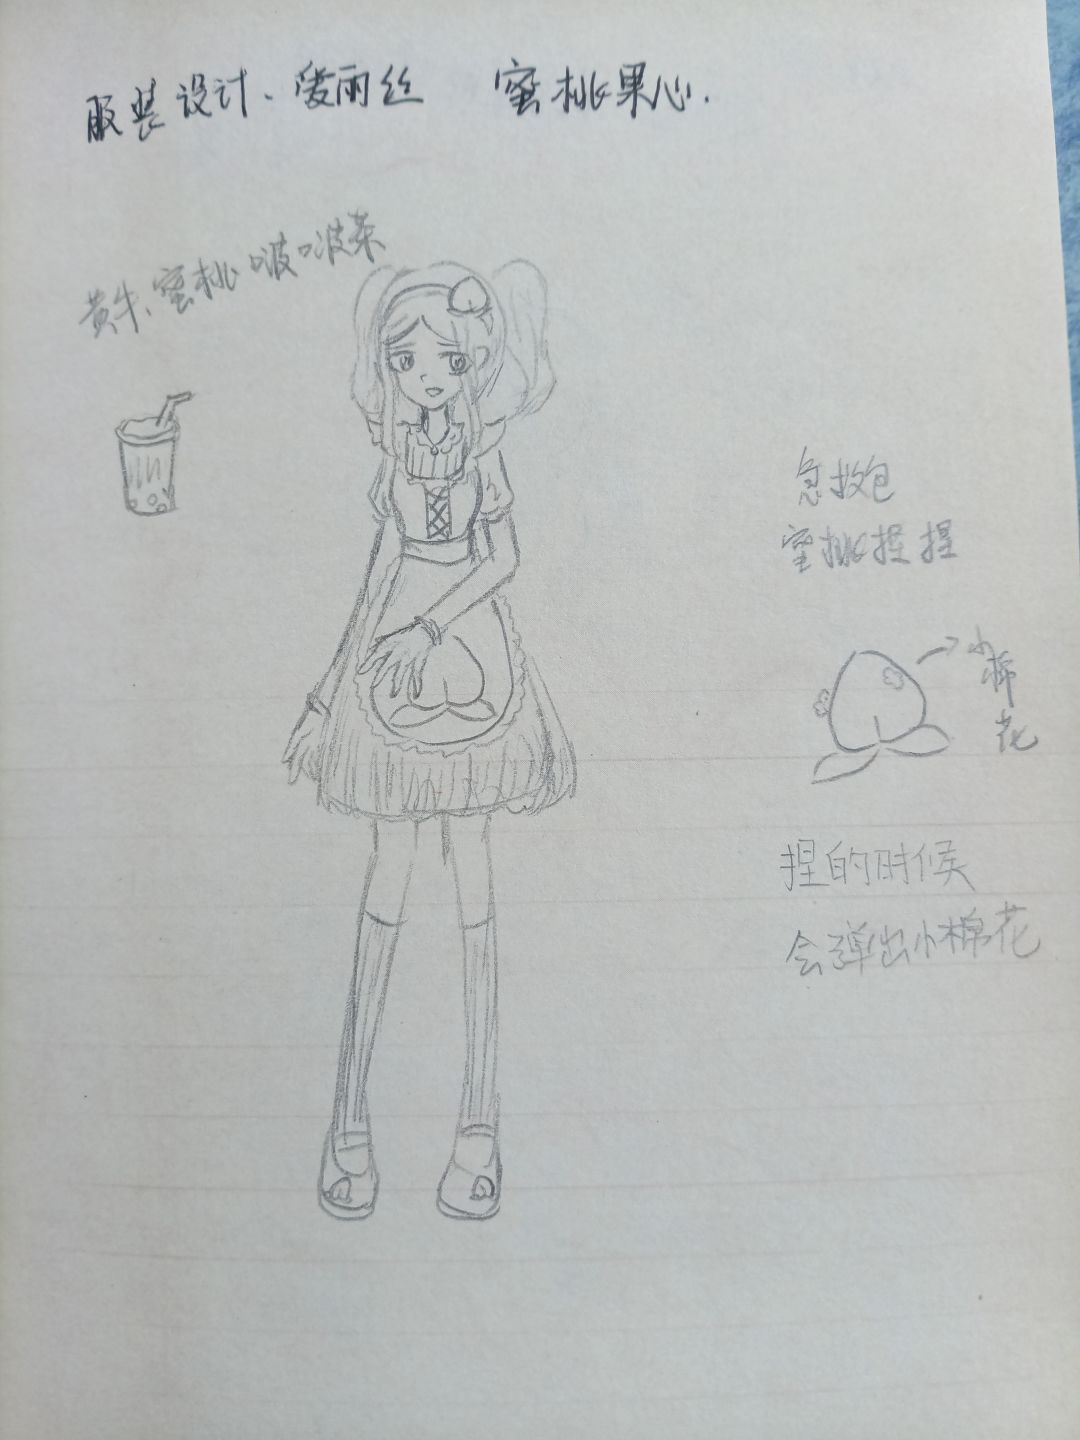 服装设计.爱丽丝 蜜桃果心.
黄牛.蜜桃啵啵茶
急救包
蜜桃捏捏
小棉花
捏的时候
会弹出小棉花